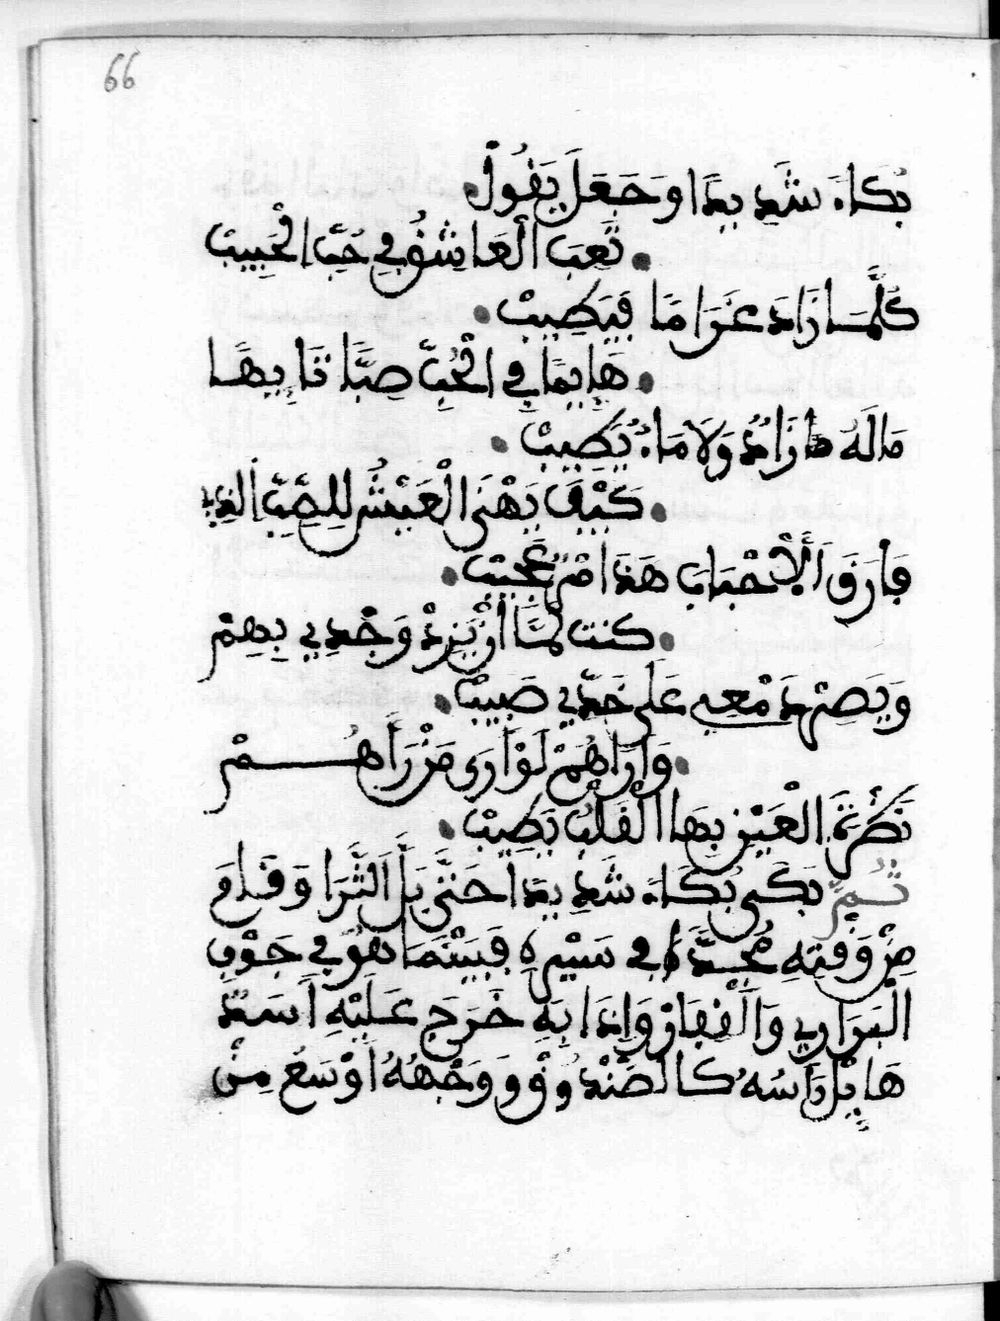 66
بُكَاءَ شَدِيدًا وَجَعَلَ يَقُولُ
• تَعِبَ الْعَاشِقُ فِي حُبِّ الْحَبِيبْ
كُلَّمَا زَادَ غَرَامًا فَيَطِيبْ •
• هَايِمًا فِي الْحُبِّ صَبًّا تَايِهَا
مَالَهُ زَادٌ وَلَا مَاءٌ يَطِيبْ •
• كَيْفَ يَهْنَى الْعَيْشُ لِلصَّبِّ الَّذِي
فَارَقَ الْأَحْبَابَ هَذَا أَمْرٌ عَجِيبْ •
• كنت لَمَّا أَنْ يَزِدْ وَجْدِي بِهِمْ
وَيَصِرْ دَمْعِي عَلَى خَدِّي صَبِيبْ •
• وَأَرَاهُمْ لَوْ أَرَى مَنْ رَآهُمْ
نَظْرَةَ الْعَيْنِ بِهَا الْقَلْبُ يَطِيبْ •
ثُمَّ بَكَى بُكَاءً شَدِيدًا حَتَّى بَلَّ الثَّرَا وَقَامَ
مِنْ وَقْتِهِ مُجِدًّا فِي سَيْرِهِ فَبَيْنَمَا هُوَ فِي جَوْفِ
الْبَرَارِي وَالْقِفَارْ وَإِذَا بِهِ خَرَجَ عَلَيْهِ أَسَدٌ
هَايِلٌ رَأْسُهُ كَالصَّنْدُوقْ وَوَجْهُهُ أَوْسَعُ مِنْ